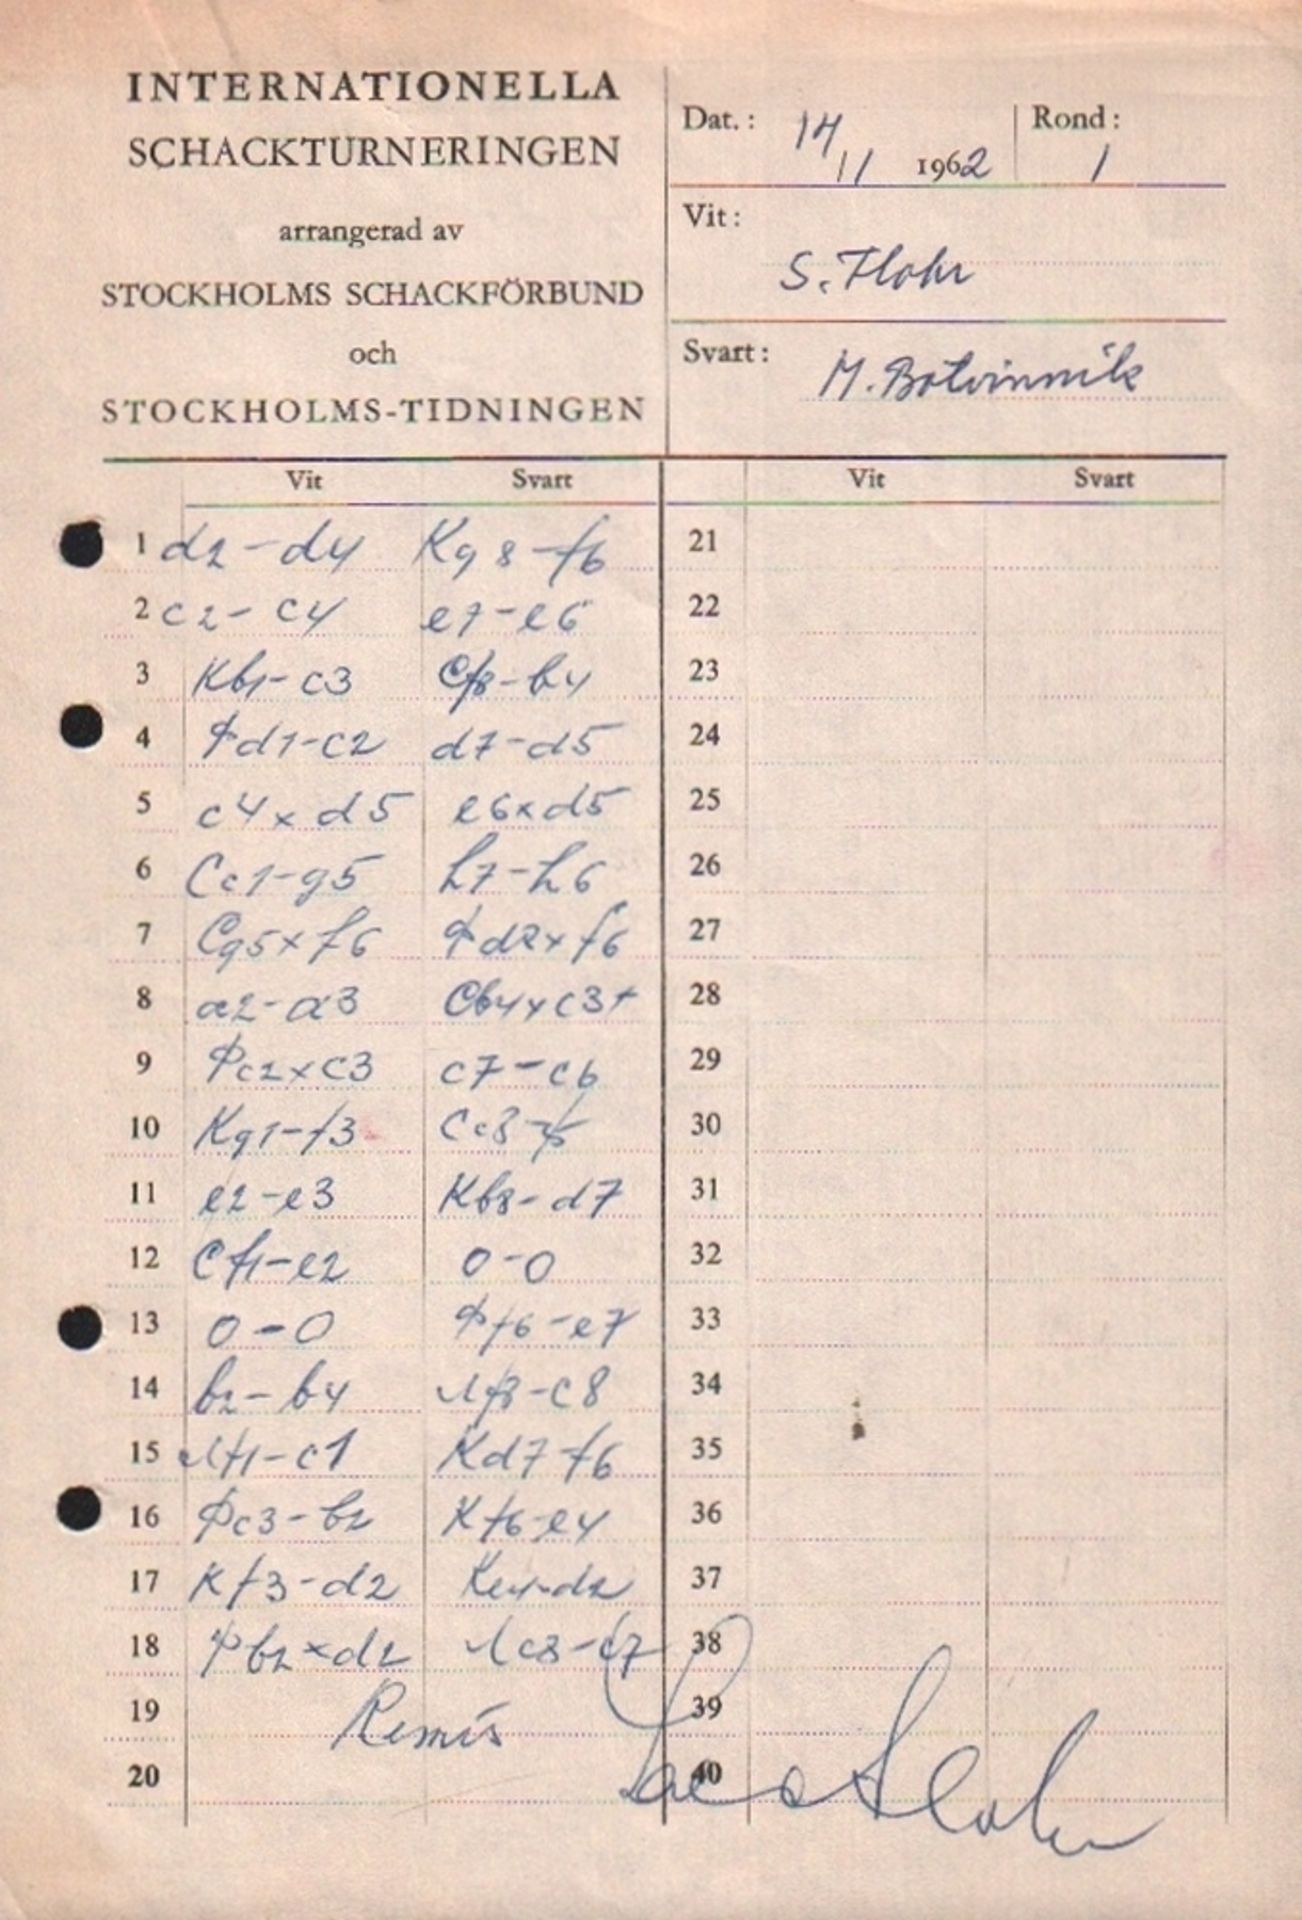 INTERNATIONELLA
SCHACKTURNERINGEN
arrangerad av
STOCKHOLMS SCHACKFÖRBUND
och
STOCKHOLMS-TIDNINGEN
Dat.: 14/11 1962 Rond: 1
Vit: S. Flohr
Svart: M. Botvinnik
Vit Svart Vit Svart
1 d2-d4 Kg8-f6 21
2 c2-c4 e7-e6 22
3 Kb1-c3 Cf8-b4 23
4 Фd1-c2 d7-d5 24
5 c4xd5 e6xd5 25
6 Cc1-g5 h7-h6 26
7 Cg5xf6 Фd8xf6 27
8 a2-a3 Cb4xc3+ 28
9 Фc2xc3 c7-c6 29
10 Kg1-f3 Cc8-f5 30
11 e2-e3 Kb8-d7 31
12 Cf1-e2 0-0 32
13 0-0 Фf6-e7 33
14 b2-b4 Лf8-c8 34
15 Лf1-c1 Kd7-f6 35
16 Фc3-b2 Kf6-e4 36
17 Kf3-d2 Ke4-d2 37
18 Фb2xd2 Лc8-c7 38
19 Remis 39
20 40
Salo Flohr